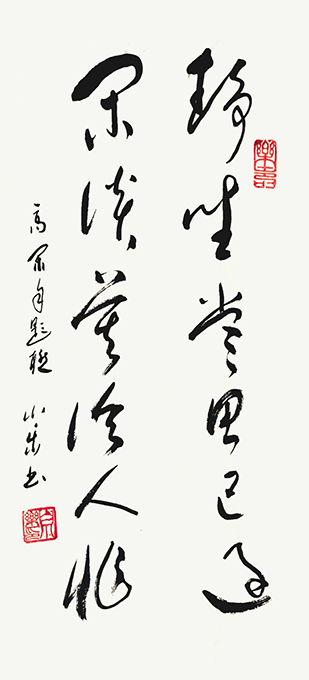 静坐常思己过
闲谈莫论人非
高 题联 书